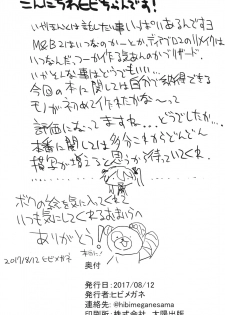 こんにちわヒビちゃんです!
いやほんとは話したい事いっぱいあるんですヨ
M&B2はいつなのかーとか、ディアブロ2のリメイクは
いつなんだ、つーか作る気あんのかブリザード。
いかそんな事はどうでもいい‥‥
今回の本に関しては自分で納得できる
モノが初めて作れたかな〜って
評価になってますね‥‥どうでしたか‥‥
本番に関しては多分これからどんどん
描写が増えてくと思うから待っていてくれ。
ボクの絵を気に入ってくれて
いつも気にしてくれるおまいらへ
ありがとう!
2017/8/12 ヒビメガネ
奥付
発行日:2017/08/12
発行者:ヒビメガネ
連絡先:@hibimeganesama
印刷所:株式会社 大陽出版